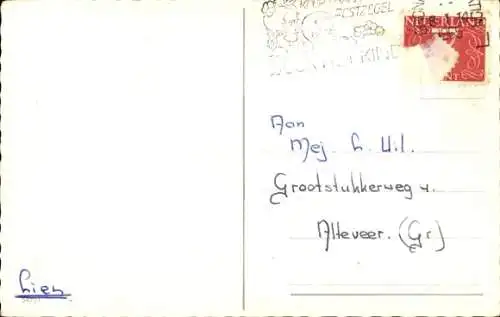 POSTZEGEL
NEDERLAND
CENT
Aan
Mej L. Uil.
Grootstukkerweg 4.
Alteveer. (Gr)
Lien